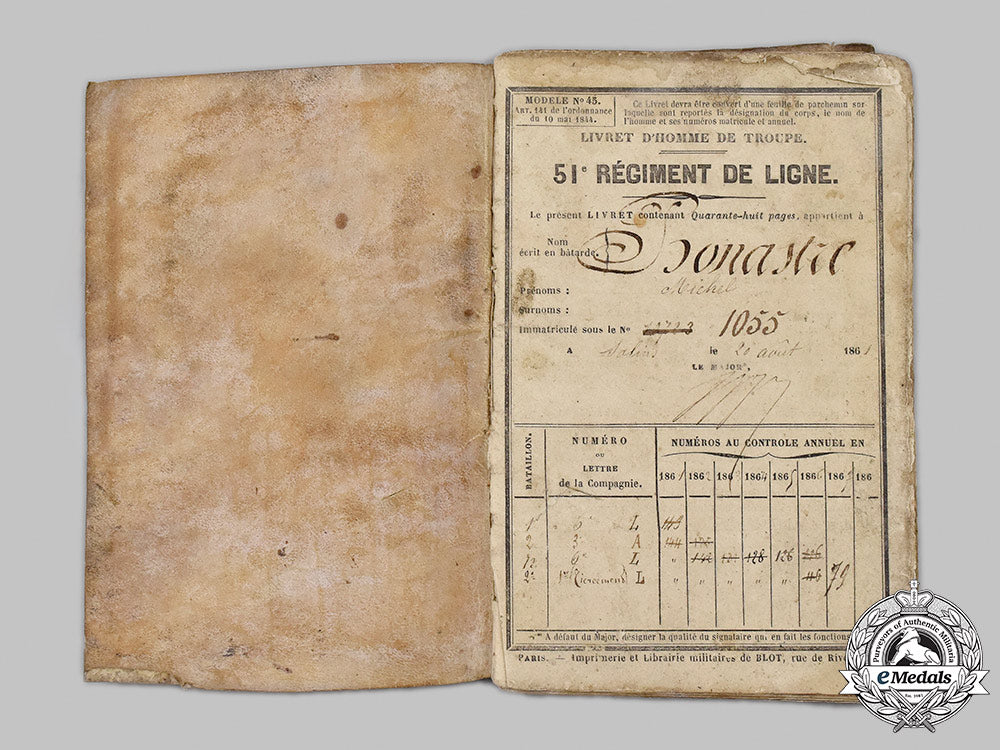 MODELE Nº 45.
ART. 141 de l'ordonnance
du 10 mai 1844.
Ce Livret devra être couvert d'une feuille de parchemin sur
laquelle sont reportés la désignation du corps, le nom de
l'homme et ses numéros matricule et annuel.
LIVRET D'HOMME DE TROUPE.
51e RÉGIMENT DE LIGNE.
Le présent LIVRET contenant Quarante-huit pages, appartient à
Nom
écrit en bâtarde.
Bonastre
Prénoms : Michel
Surnoms :
Immatriculé sous le No 1055
A Salins le 20 août 1861
LE MAJOR,
BATAILLON.
NUMÉRO
OU
LETTRE
de la Compagnie.
NUMÉROS AU CONTROLE ANNUEL EN
1861 1862 1863 1864 1865 1866 1867 186
1er 6e L 143
2 3e A 144
6e L " 142 128 126 116
2e L " " " " " 116 79
A défaut du Major, désigner la qualité du signataire qui en fait les fonctions
PARIS. — Imprimerie et Librairie militaires de BLOT, rue de Riv
Purveyors of Authentic Militaria
eMedals